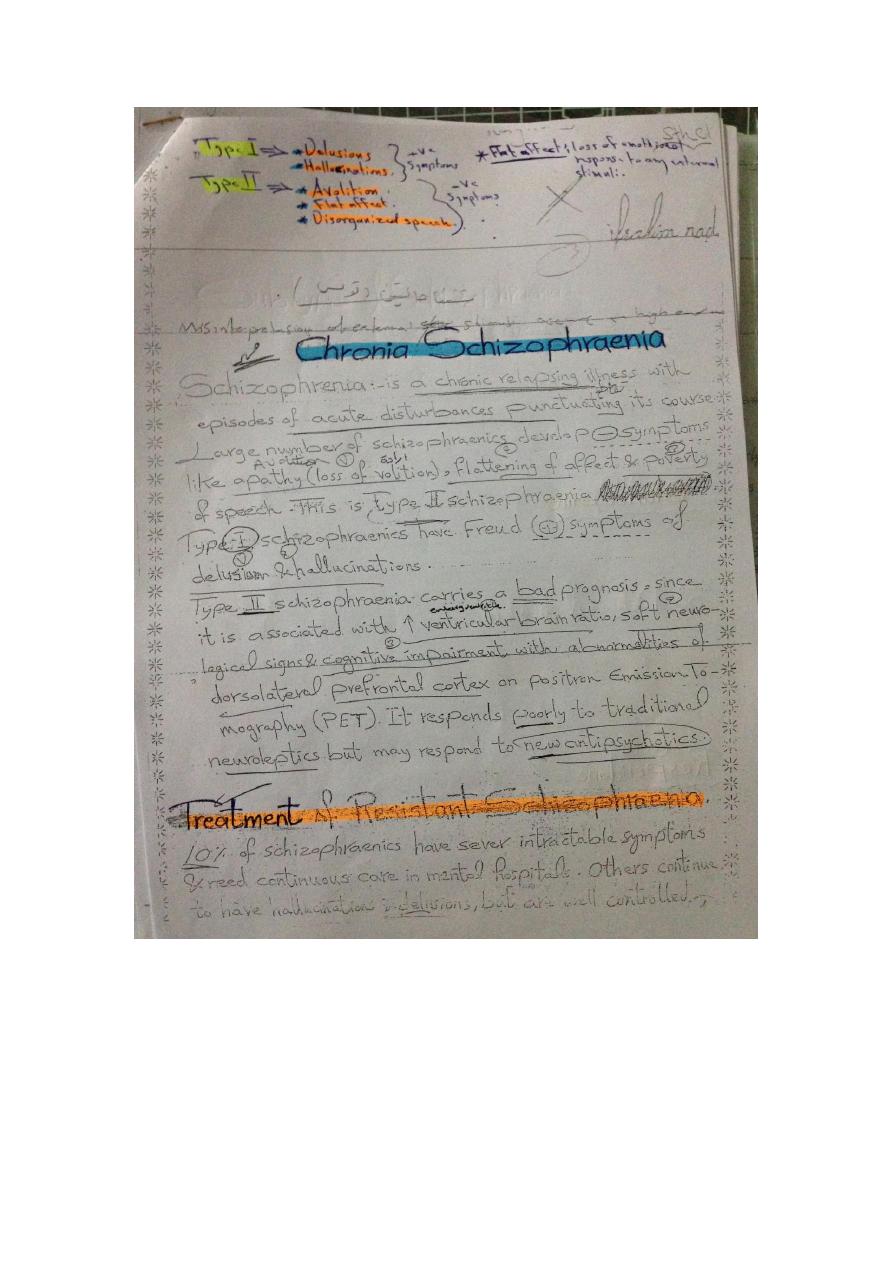 Type I ⇒ * Delusions
* Hallucinations.
+ve symptoms
Type II ⇒ * Avolition.
* Flat affect.
* Disorganized speech.
-ve symptoms
* Flat affect: loss of emotional
response to any external
stimuli.
Chronia Schizophraenia
Schizophrenia:- is a chronic relapsing illness with
episodes of acute disturbances punctuating its course
Large number of schizophraenics develop ⊖ symptoms
Avolition ① ②
like apathy (loss of volition), flattening of affect & poverty
of speech. This is type II schizophraenia
Type I schizophraenics have Freud (+) symptoms of
① ②
delusion & hallucinations.
Type II schizophraenia carries a bad prognosis, since
it is associated with ↑ ventricular brain ratio, soft neuro-
③
logical signs & cognitive impairment with abnormalities of
dorsolateral prefrontal cortex on positron Emission To-
mography (PET). It responds poorly to traditional
neuroleptics but may respond to new antipsychotics.
Treatment of Resistant Schizophraenia.
10% of schizophraenics have sever intractable symptoms
& reed continuous care in mental hospitals. Others continue
to have hallucination & delusions, but are well controlled